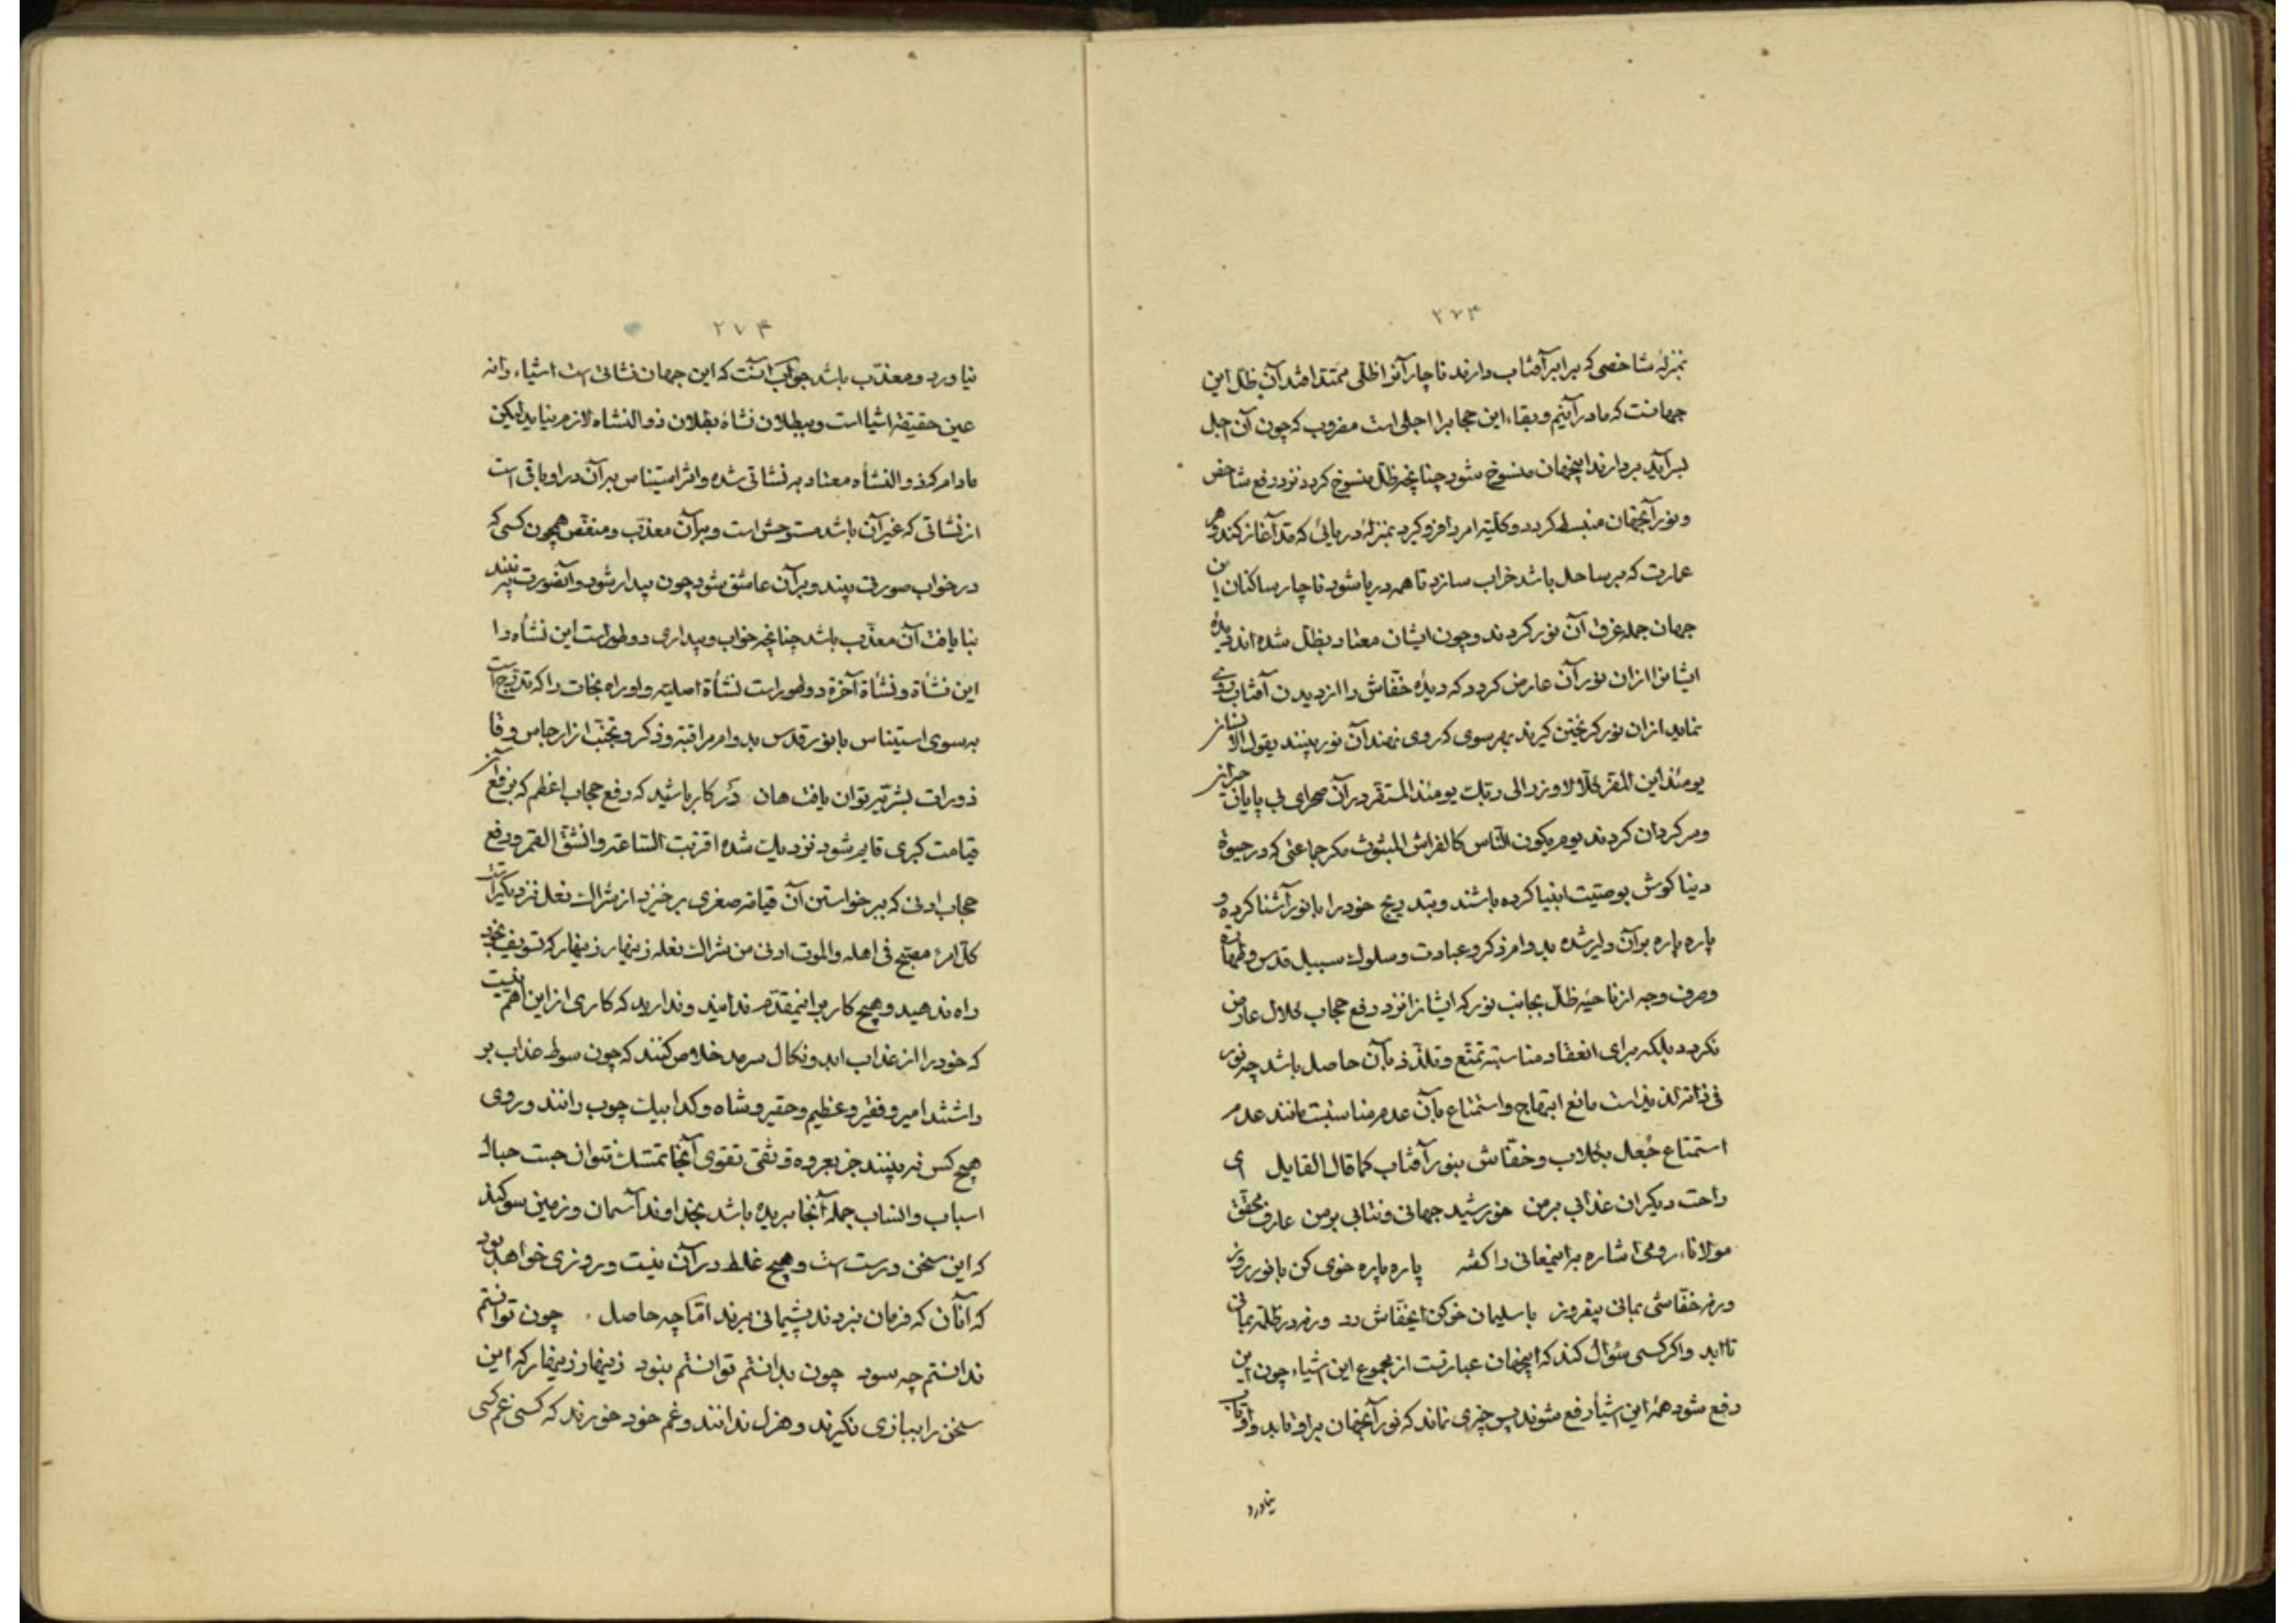 ۲۷۳
بمنزلهٔ شاخصی که برابر آفتاب دارند ناچار آنرا ظلی ممتد افتد آن ظل این
جهانست که ما در آنیم و بقاء این حجابرا اجلی است مضروب که چون آن اجل
بسر آید بردارند اینجهان منسوخ شود چنانچه ظل منسوخ کردد نزد رفع شاخص
و نور آنجهان منبسط کردد و کلیه امر را فرو کیرد بمنزلهٔ دریائی که مد آغاز کند و هر
عمارت که بر ساحل باشد خراب سازد تا همه دریا شود ناچار ساکنان این
جهان جمله غرق آن نور کردند و چون ایشان معتاد بظل شده اند دیدهٔ
ایشانرا از ان نور آن عارض کردد که دیدهٔ خفاش را از دیدن آفتاب روی
نماید از ان نور کریختن کیرند بهر سوی که روی نهند آن نور بینند یقول الانسان
یومئذ این المفر کلا لا وزر الی ربک یومئذ المستقر در آن صحرای بی پایان حیران
و سر کردان کردند یوم یکون الناس کالفراش المبثوث مکر جماعتی که در حیوة
دنیا کوش بوصیت انبیا کرده باشند و بتدریج خود را با نور آشنا کرده و
پاره پاره بر آن دلیر شده بدوام ذکر و عبادت و سلوک سبیل قدس و طهارة
و صرف وجه از ناحیهٔ ظل بجانب نور که ایشانرا نزد رفع حجاب ملال عارض
نکردد بلکه برای انعقاد مناسبة تمتع و تلذذ بآن حاصل باشد چه نور
فی ذاته لذیذ است مانع ابتهاج و استمتاع بآن عدم مناسبت مانند عدم
استمتاع جُعل بکلاب و خفاش بنور آفتاب کما قال القایل ای
راحت دیکران عذابی بر من خورشید جهانی و نتابی بر من عارف محقق
مولاناء رومی اشاره باینمعانی را کفته پاره پاره خوی کن با نور روز
ورنه خفاشی بمانی بیفروز با سلیمان خو کن ای خفاش رد ورنه در ظلمة بمانی
تا ابد و اکر کسی سؤال کند که اینجهان عبارتست از مجموع این اشیاء چون این
رفع شود همهٔ این اشیا رفع شوند پس چیزی نماند که نور آنجهان بر او تابد و او تاب
نیاورد
۲۷۴
نیاورد و معذب باشد جواب آنست که این جهان نشأتی است اشیاء را نه
عین حقیقة اشیا است و ببطلان نشأة بطلان ذو النشاه لازم نیاید لیکن
مادام که ذو النشأه معتاد بر نشاتی شده و اثر استیناس بر آن در او باقی است
از نشاتی که غیر آن باشد مستوحش است و بر آن معذب و منغص همچون کسی که
در خواب صورتی بیند و بر آن عاشق شود چون بیدار شود و آنصورت نبیند
بنا یافت آن معذب باشد چنانچه خواب و بیداری دو طور است این نشأه را
این نشأة و نشأة آخرة دو طور است نشأة اصلیه و او راه نجات را که تدریج است
بسوی استیناس با نور قدس بدوام مراقبة و ذکر و تجنب از ارجاس و قا
ذورات بشریه توان یافت هان در کار باشید که رفع حجاب اعظم که برفع آن
قیامت کبری قایم شود نزدیک شده اقتربت الساعة و انشق القمر و رفع
حجاب ادنی که ببرخواستن آن قیامة صغری برخیزد از شراک نعل نزدیکتر است
کل امرء مصبح فی اهله و الموت ادنی من شراک نعله زینهار زینهار که تسویف بخود
راه ندهید و هیچ کار بر اینمقدم ندانید و ندارید که کاری از این اهم نیست
که خود را از عذاب ابد و نکال سرمد خلاص کنند که چون سوط عذاب بر
داشتند امیر و فقیر و عظیم و حقیر و شاه و کدا بیک چوب رانند و روی
هیچ کس نه بینند جز بعروه وثقی تقوی آنجا تمسک نتوان جست حبال
اسباب و انساب جمله آنجا بریده باشد بخداوند آسمان و زمین سوکند
که این سخن درست است و هیچ غلط در آن نیست و روزی خواهد بود
که آنان که فرمان نبردند پشیمانی برند اما چه حاصل . چون توانستم
ندانستم چه سود چون بدانستم توانستم نبود زینهار زینهار که این
سخن را ببازی نکیرند و هزل ندانند و غم خود خورند که کسی غم کسی